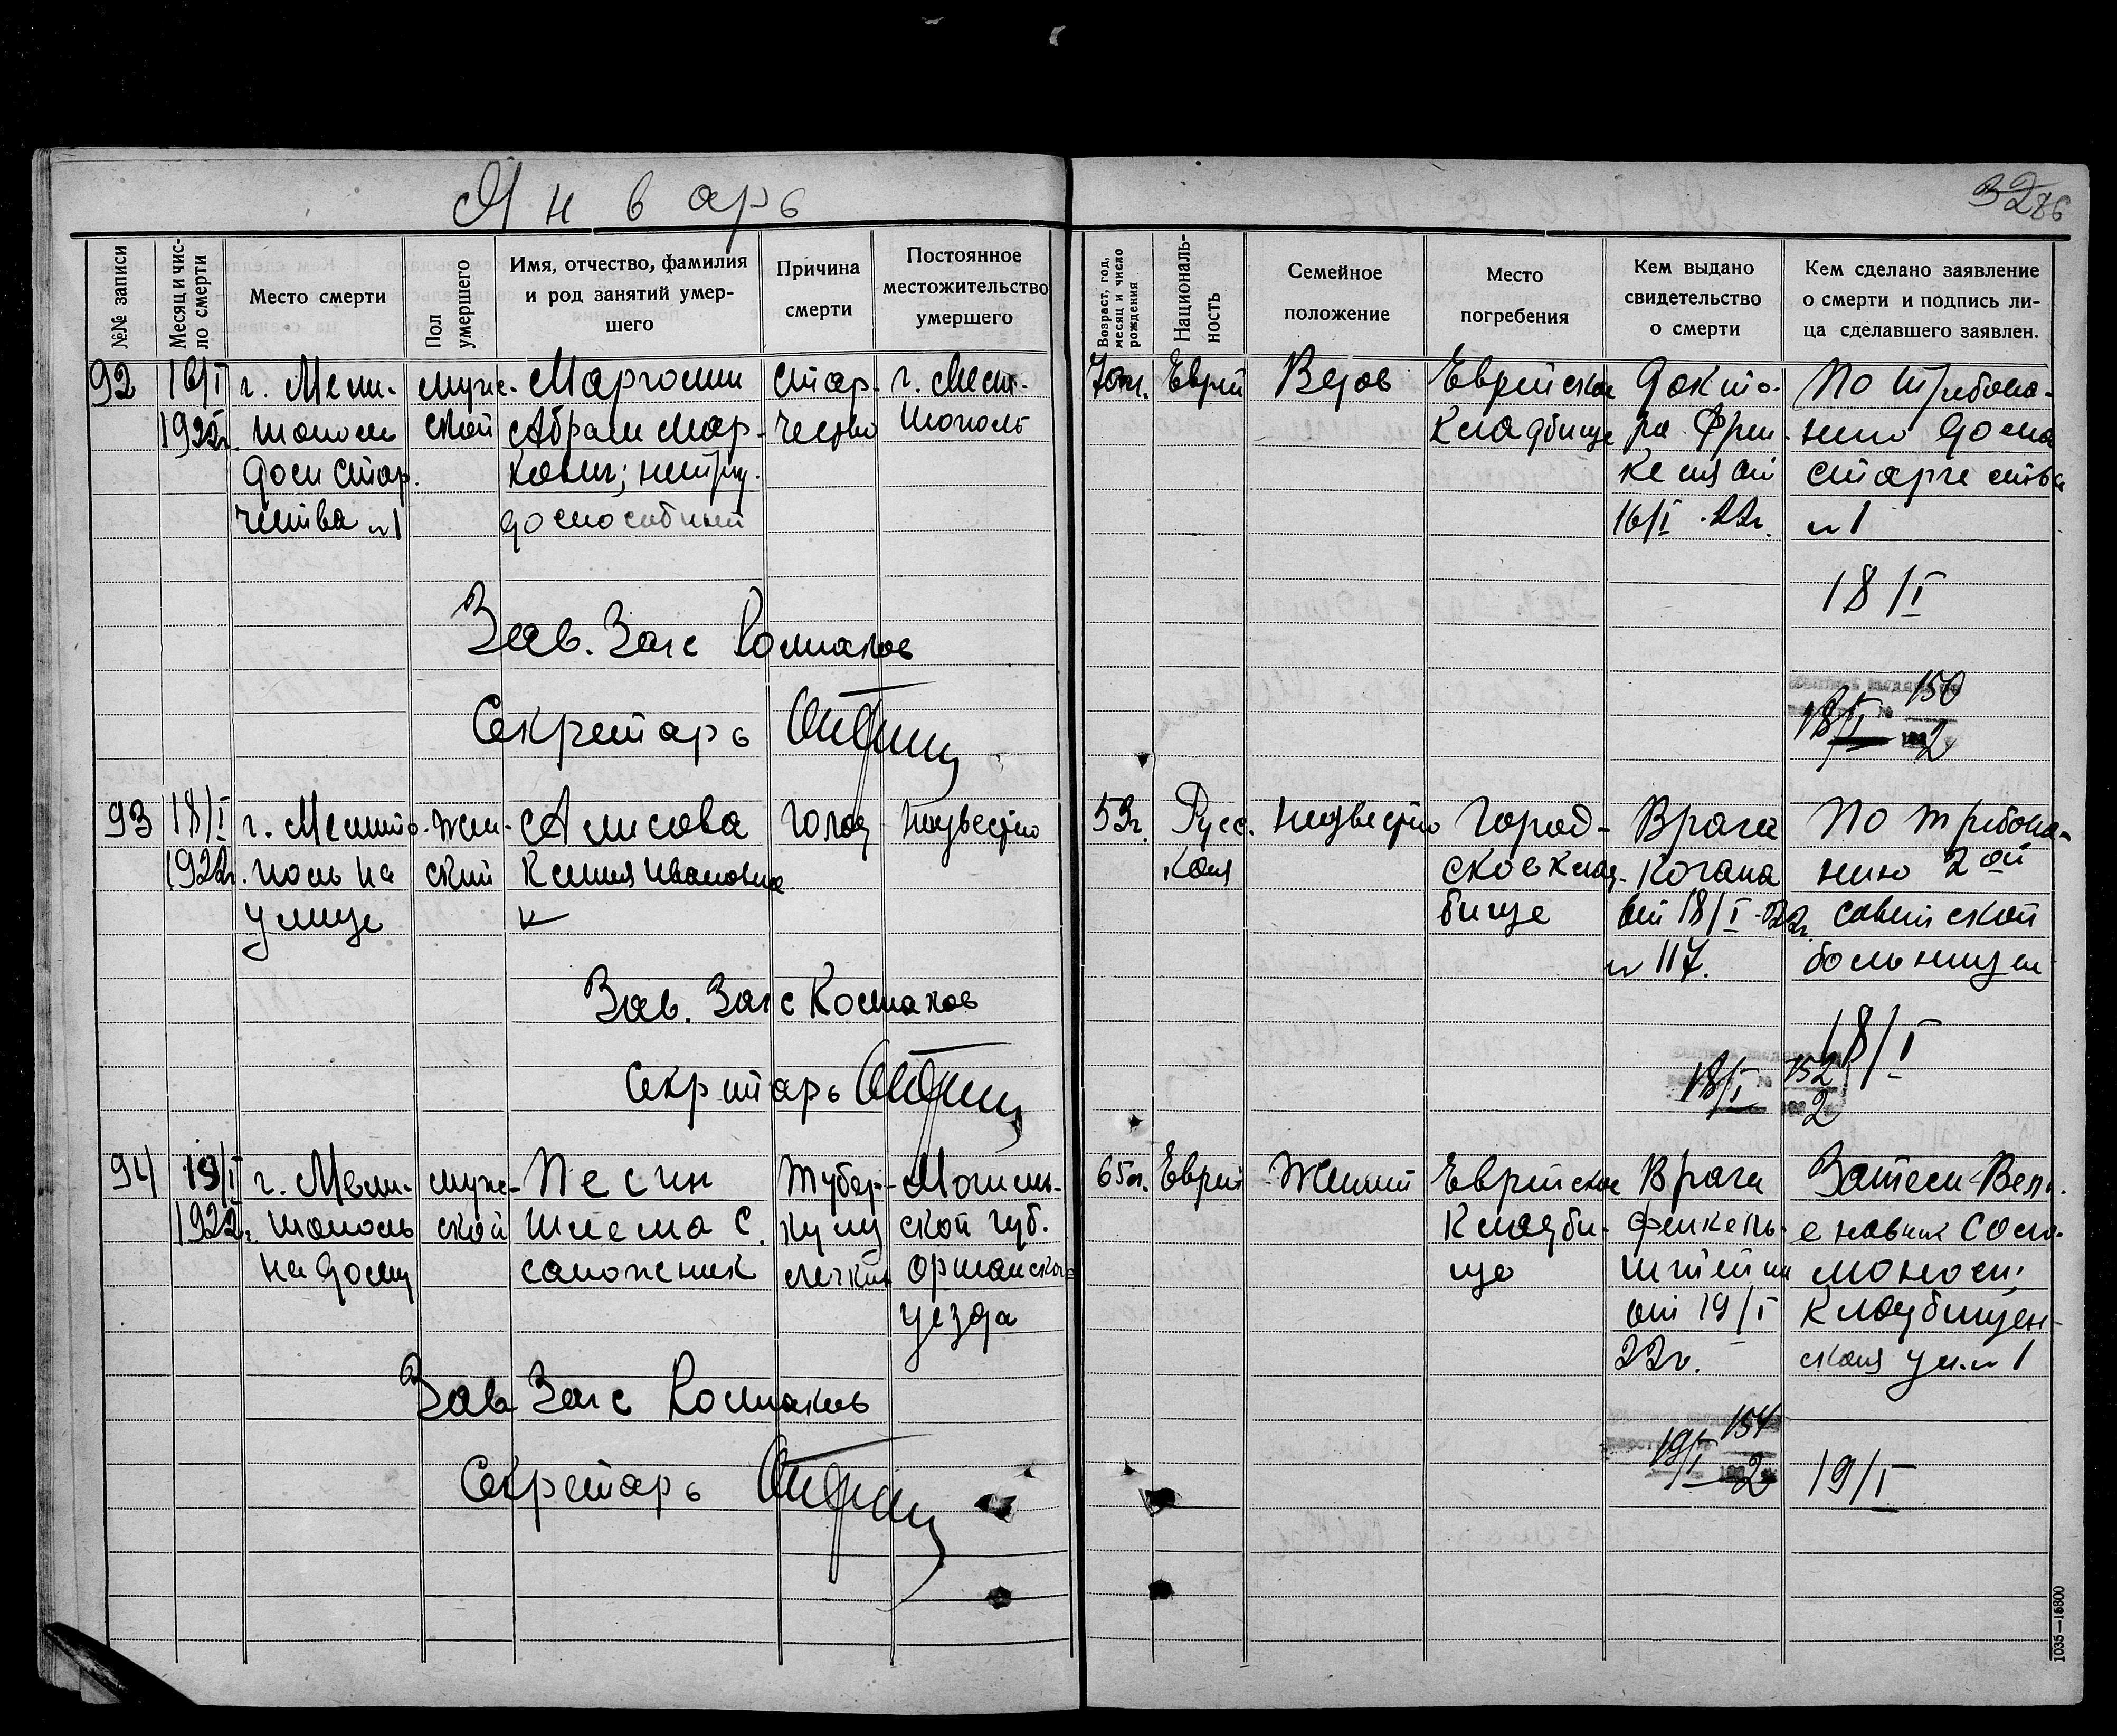 Январь
32 86
№№ записи
Месяц и число смерти
Место смерти
Пол умершего
Имя, отчество, фамилия
и род занятий умер-
шего
Причина
смерти
Постоянное
местожительство
умершего
Возраст, год,
месяц и число
рождения
Националь-
ность
Семейное
положение
Место
погребения
Кем выдано
свидетельство
о смерти
Кем сделано заявление
о смерти и подпись ли-
ца сделавшего заявлен.
92
16/I
1922г.
г. Мели-
тополь
дом стар-
чества №1
муж-
ской
Марголин
Абрам Мар-
кович; нетру-
доспособный
стар-
чество
г. Мели-
тополь
70л.
Еврей
Вдов
Еврейское
Кладбище
Докто-
ра Френ-
келя от
16/I 22г.
По требова-
нию дома
старчества
№1
18/I
Зав. Загс
Секретарь
150
18/I
2
93
18/I
1922г.
г. Мелито-
поль на
улице
жен-
ский
Алисова
Ксения Ивановна
голод
Неизвестно
53г.
Русс-
кая
Неизвестно
Город-
ское клад-
бище
Врача
Когана
от 18/I-22г.
№ 117.
По требова-
нию 2ой
советской
больницы
18/I
Зав. Загс
Секретарь
152
18/I
2
94
19/I
1922г.
г. Мели-
тополь
на дому
муж-
ской
Песин
Шлема С.
сапожник
Тубер-
кулез
легких
Могилев-
ской губ.
Оршанского
уезда
65л.
Еврей
Женат
Еврейское
Кладби-
ще
Врача
Финкель-
штейна
от 19/I
22г.
Соло-
Кладбищен-
ская ул. №1
Зав Загс
Секретарь
154
19/I
2
19/I
1035—15800